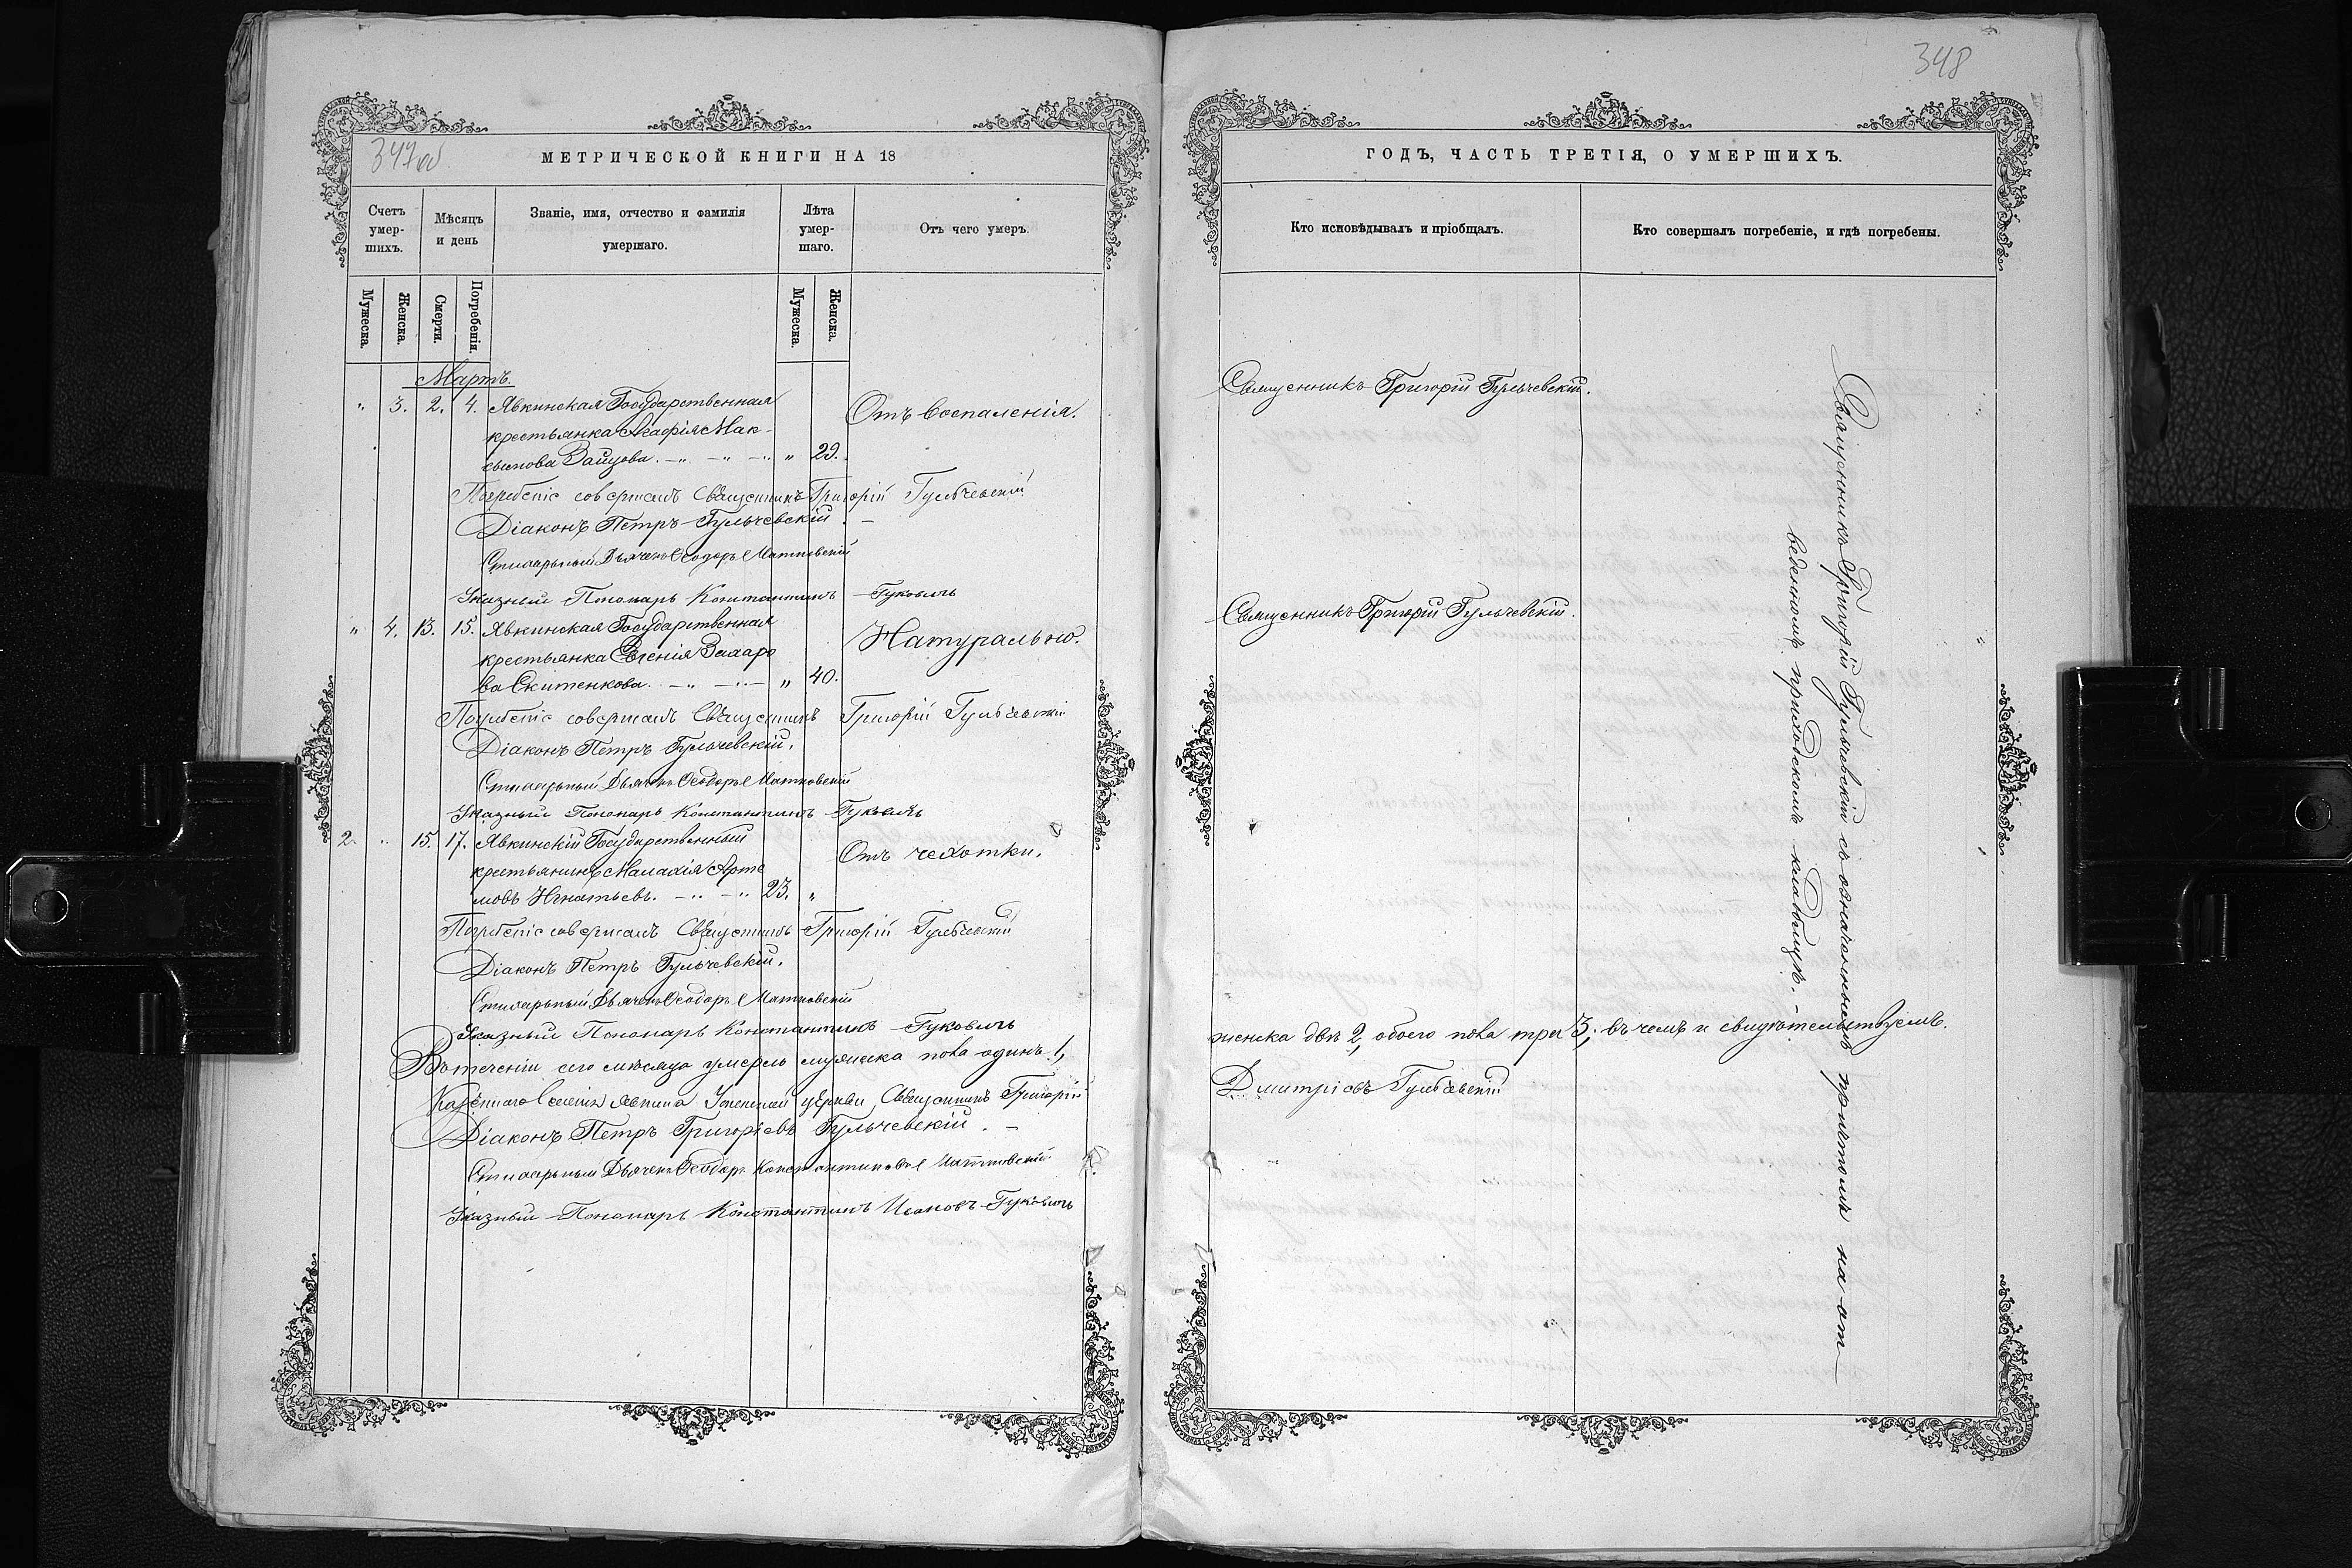 347об.
МЕТРИЧЕСКОЙ КНИГИ НА 18
Счетъ умер-шихъ.
Мѣсяцъ и день
Званіе, имя, отчество и фамилія умершаго.
Лѣта умер-шаго.
Отъ чего умеръ.
Мужеска.
Женска.
Смерти.
Погребенія.
Мужеска.
Женска.
Мартъ.
" 3. 2. 4. Явкинская Государственная
крестьянка Агафія Мак-
сымова Зайцова. " 29. Отъ воспаленія.
Погребеніе совершалъ Священникъ Григорій Гульчевскій
Діаконъ Петръ Гульчевскій. –
Стихарьный Дьячекъ Ѳеодоръ Матковскій
Указный Пономарь Константинъ Гуковичъ
" 4. 13. 15. Явкинская Государственная
крестьянка Евгенія Захаро
ва Скитенкова. " 40. Натурально.
Погребеніе совершалъ Священникъ Григорій Гульчевскій
Діаконъ Петръ Гульчевскій.
Стихарьный Дьячекъ Ѳеодоръ Матковскій
Указный Пономарь Константинъ Гуковичъ
2. " 15. 17. Явкинскій Государственный
крестьянинъ Малахія Арте
мовъ Игнатьевъ. 23. " Отъ чехотки.
Погребеніе совершалъ Священникъ Григорій Гульчевскій
Діаконъ Петръ Гульчевскій.
Стихарьный Дьячекъ Ѳеодоръ Матковскій
Указный Пономарь Константинъ Гуковичъ
Въ теченіи сего мѣсяца умерло мужеска пола одинъ 1,
Казенного Селенія Явкина Успенской церкви Священникъ Григорій
Діаконъ Петръ Григорьевъ Гульчевскій. –
Стихарьный Дьячекъ Ѳеодоръ Константиновъ Матковскій
Указный Пономарь Константинъ Гуковичъ
348
ГОДЪ, ЧАСТЬ ТРЕТІЯ, О УМЕРШИХЪ.
Кто исповѣдывалъ и пріобщалъ.
Кто совершалъ погребеніе, и гдѣ погребены.
Священникъ Григорій Гульчевскій.
Священникъ Григорій Гульчевскій.
Священникъ Григорій Гульчевскій съ означеннымъ причтомъ на от
веденномъ приходскомъ кладбищѣ. –
женска двѣ 2, обоего пола три 3; въ чемъ и свидѣтельствуемъ.
Дмитріевъ Гульчевскій